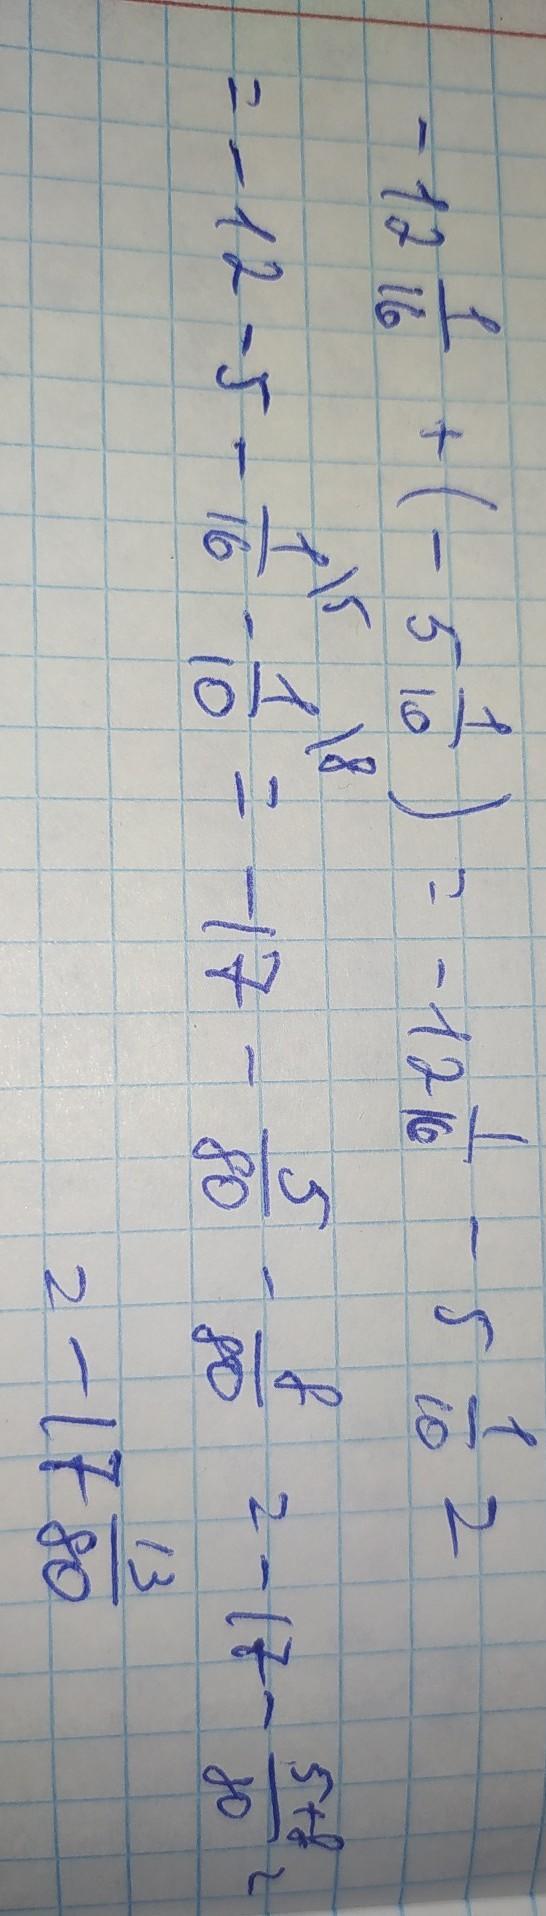 -12 1/16 + (-5 1/10) = -12 1/16 - 5 1/10 =
= -12 - 5 - 1\5/16 - 1\8/10 = -17 - 5/80 - 8/80 = -17 - 5+8/80 =
= -17 13/80